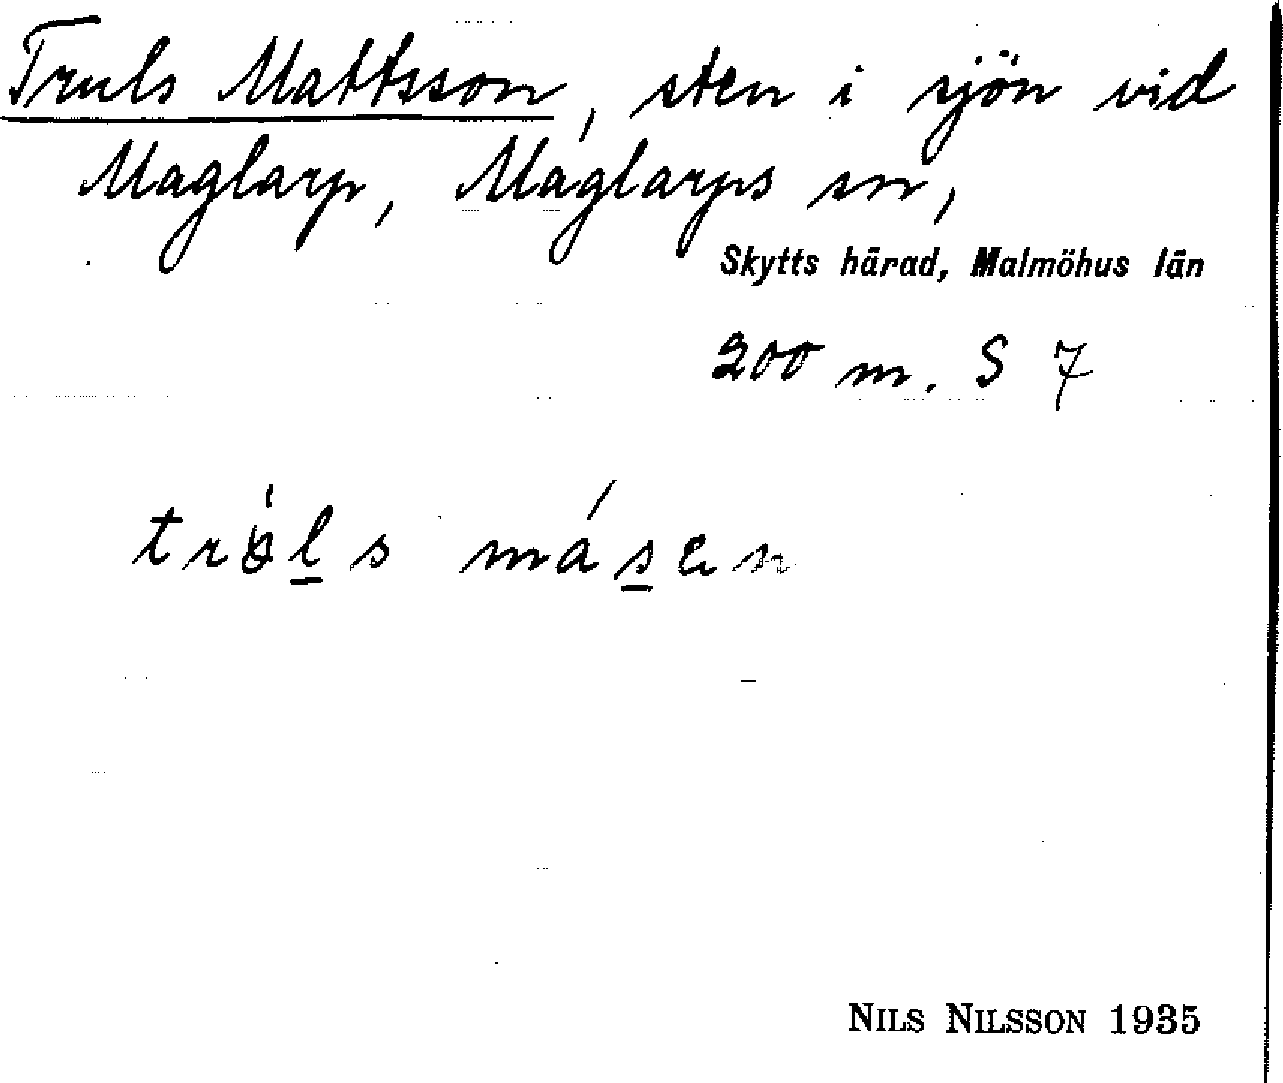 Truls Mattsson, sten i sjön vid
Maglarp, Maglarps sn,
Skytts härad, Malmöhus län
200 m. S 7
másen
NILS NILSSON 1935